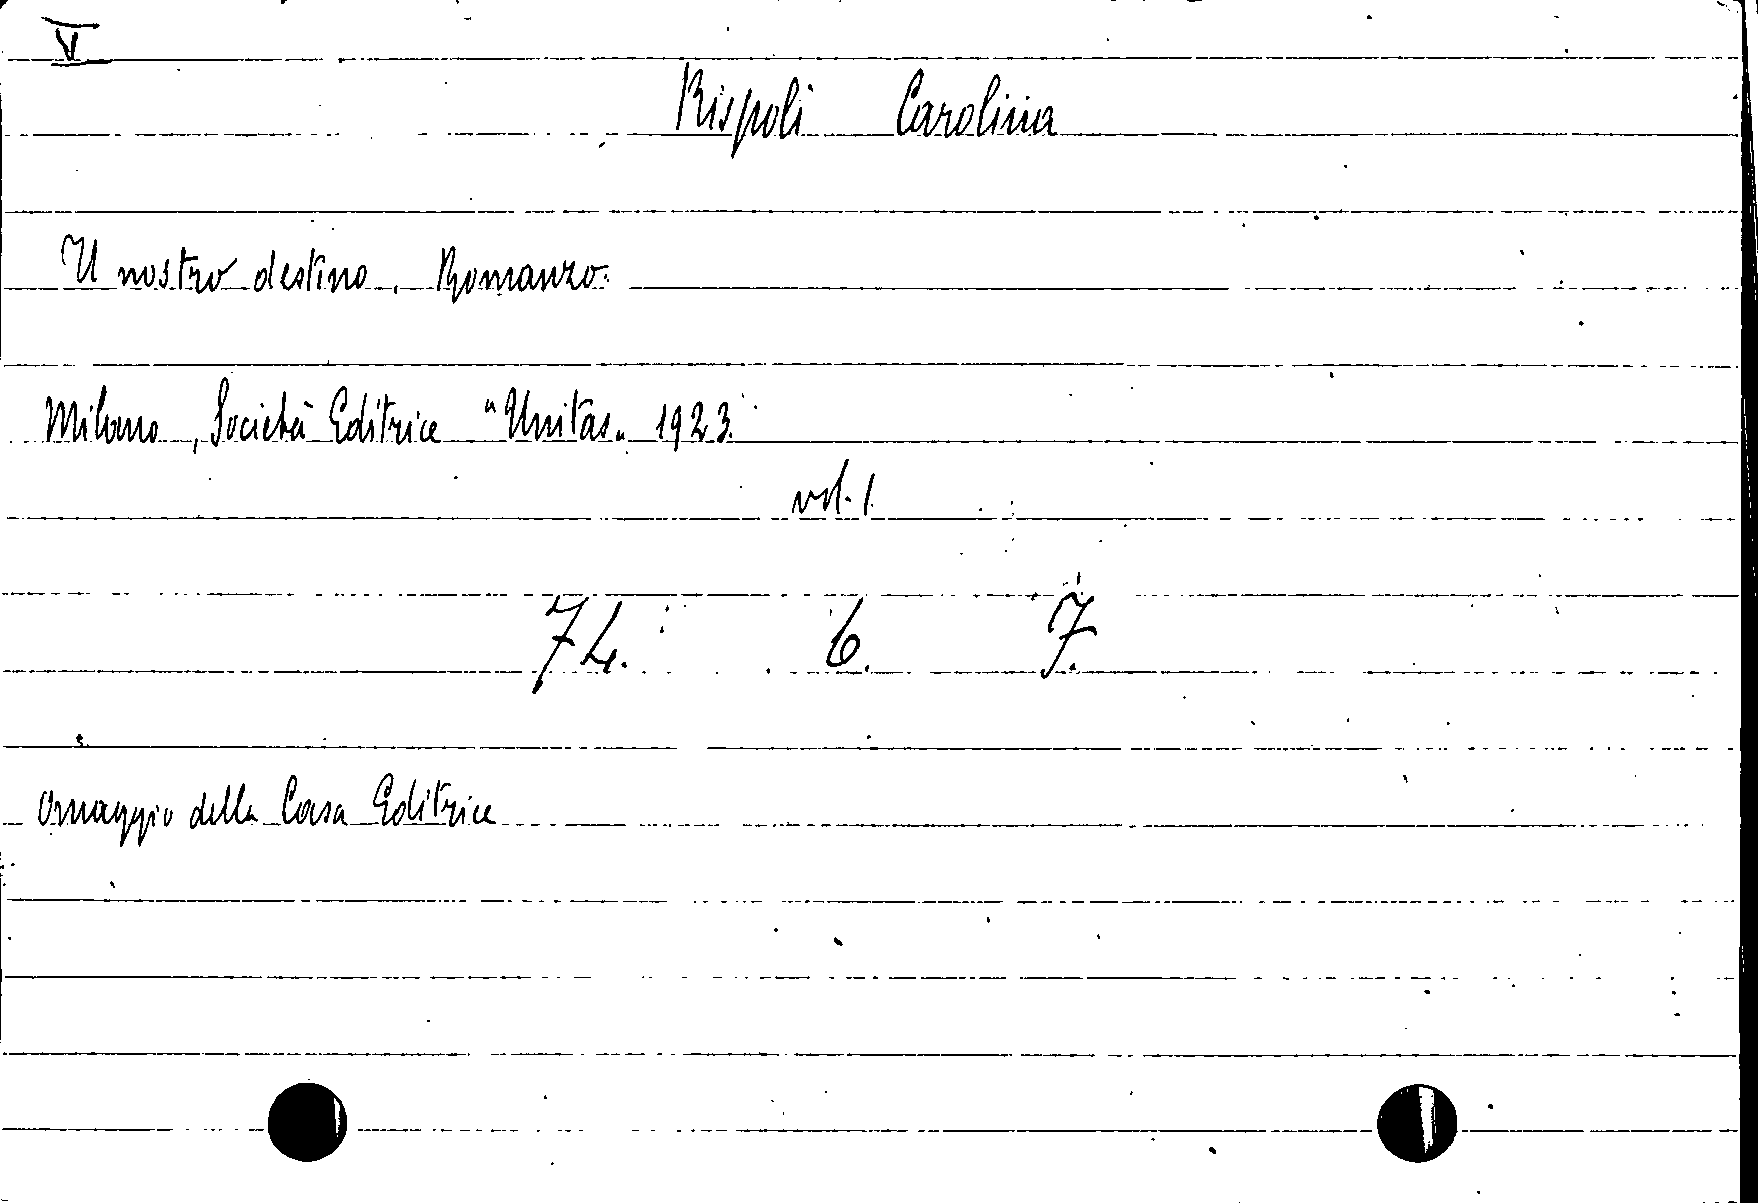 V
Rispoli Carolina
Il nostro destino. Romanzo.
Milano, Società Editrice "Unitas" 1923.
vol. 1
74. 6. 7.
Omaggio della Casa Editrice